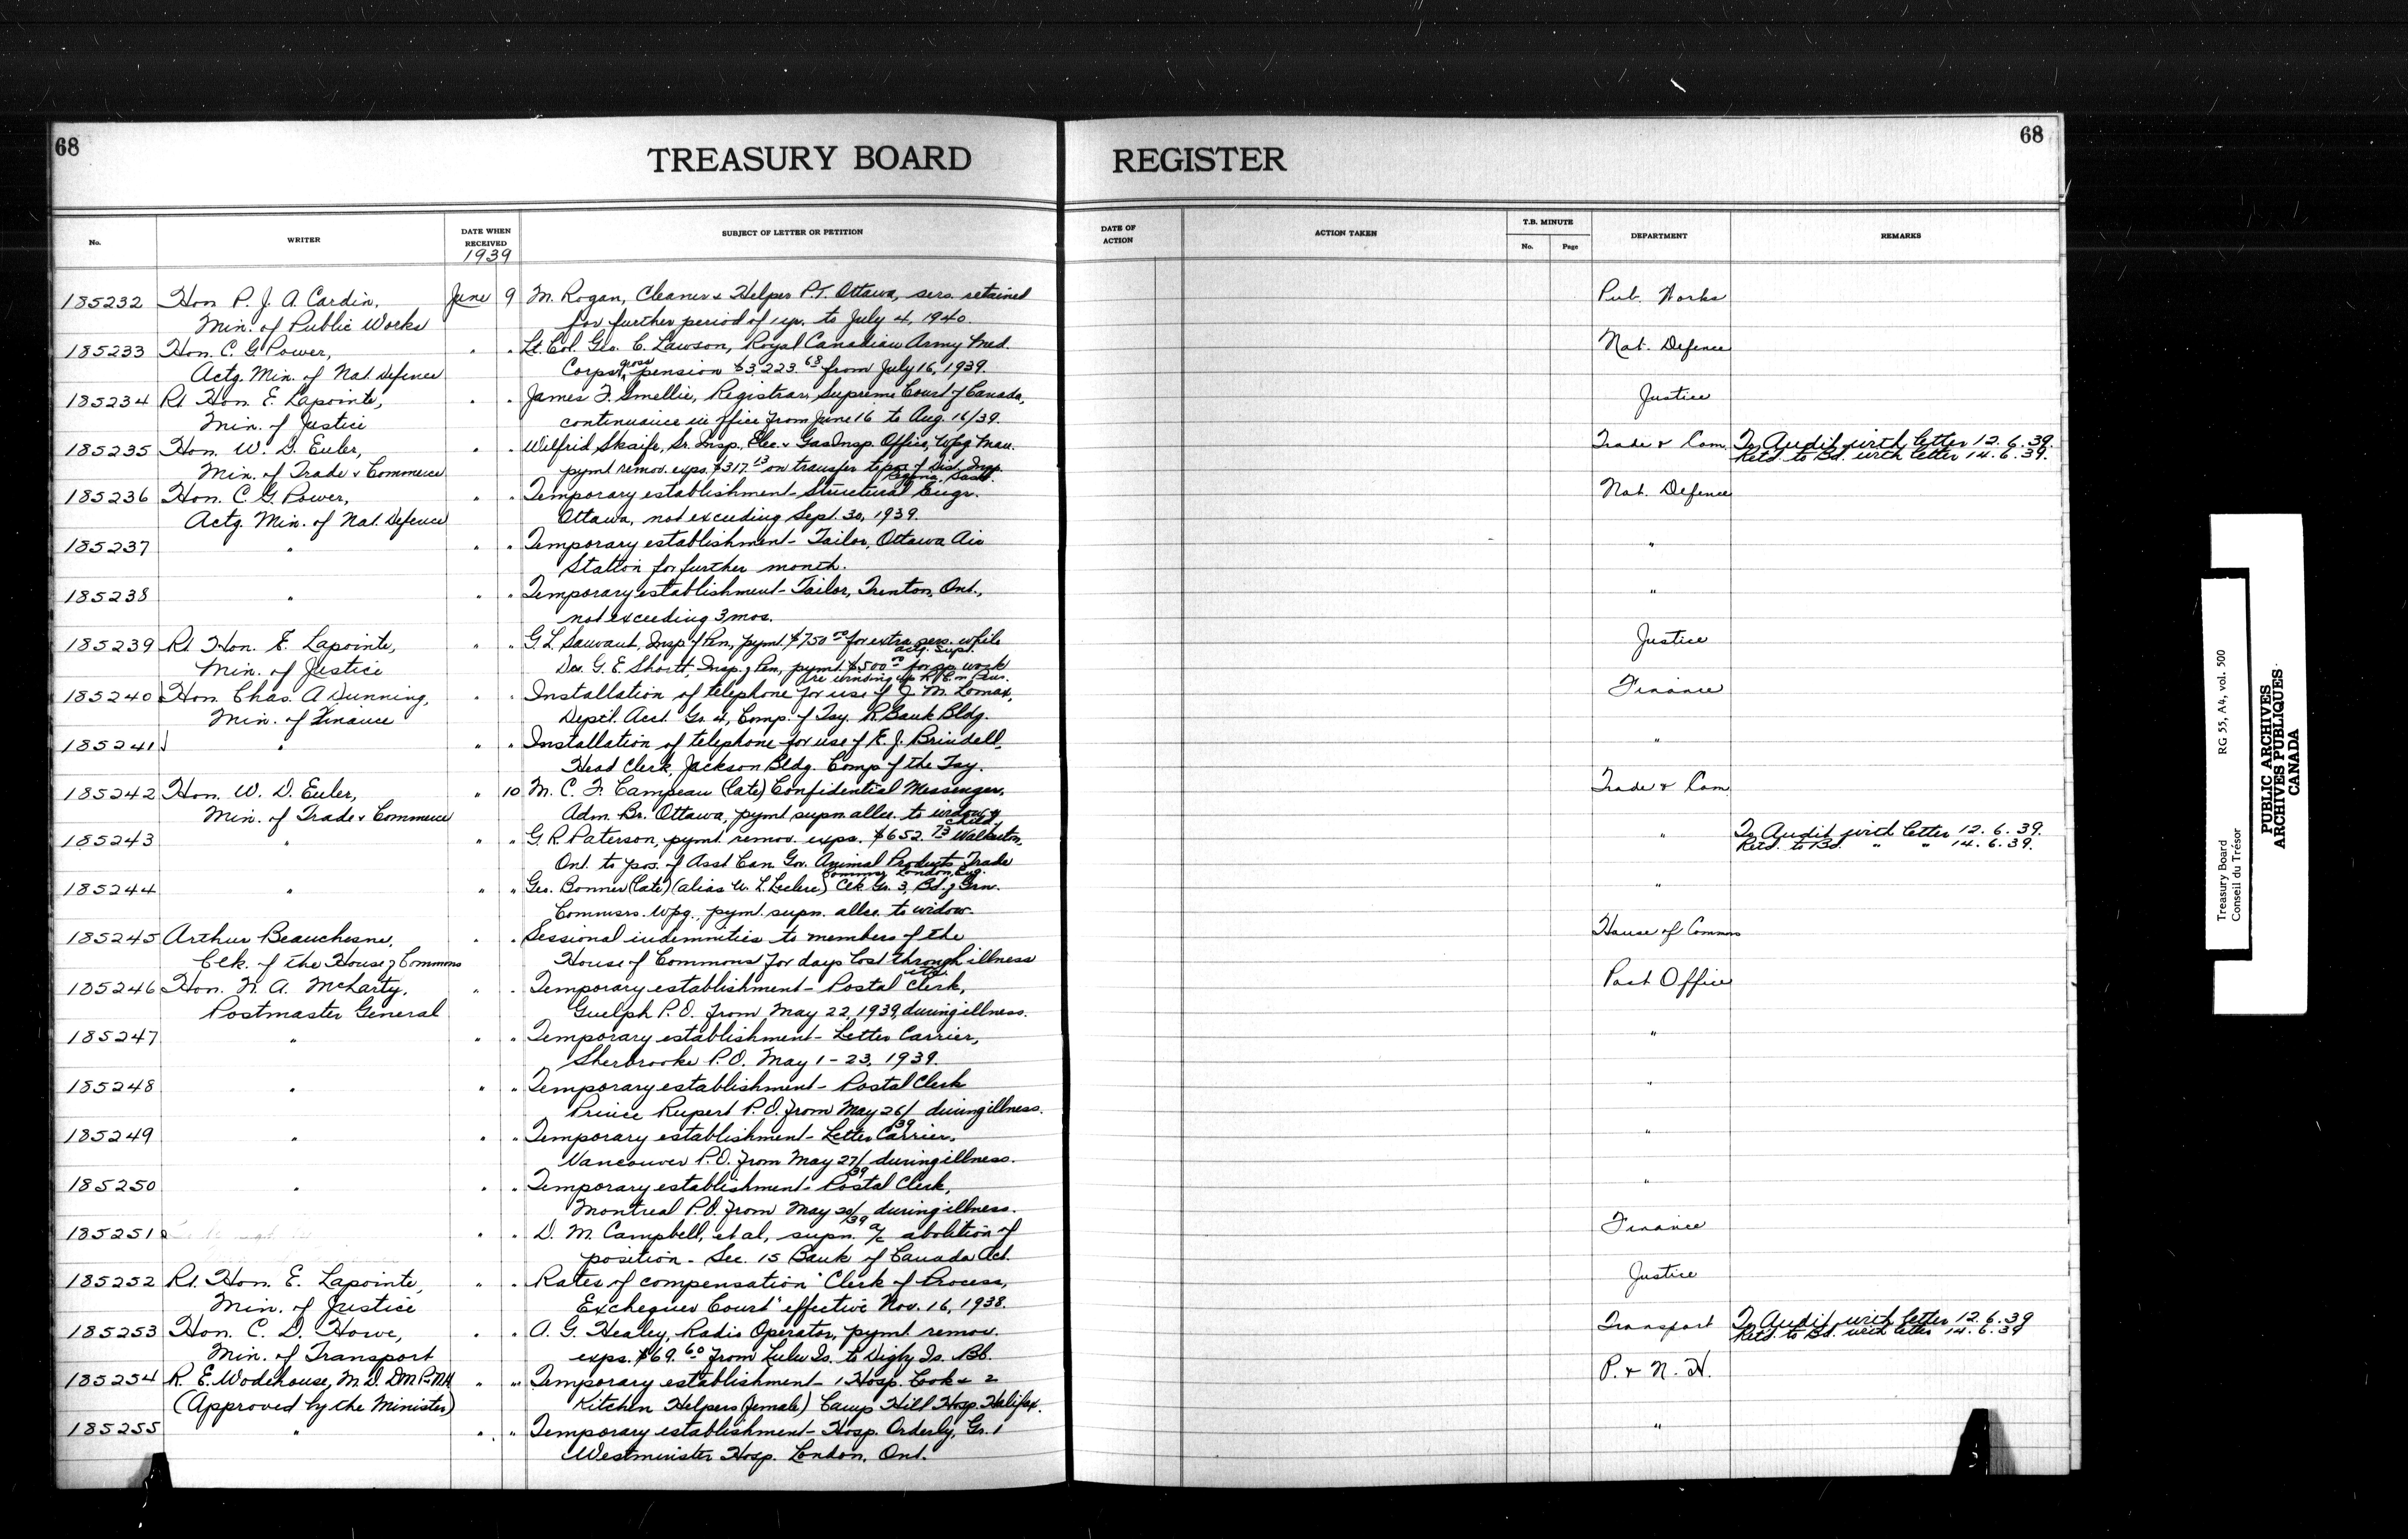 68
TREASURY BOARD REGISTER
68
No.
WRITER
DATE WHEN RECEIVED
1939
SUBJECT OF LETTER OR PETITION
DATE OF ACTION
ACTION TAKEN
T.B. MINUTE
No.
Page
DEPARTMENT
REMARKS
185232 Hon P. J. A. Cardin, June 9 M. Rogan, Cleaner & Helper P.T. Ottawa, sers. retained Pub. Works
Min. of Public Works for further period of 1 yr. to July 4, 1940.
185233 Hon. C. G. Power, " " Lt. Col. Geo. C. Lawson, Royal Canadian Army Med. Nat. Defence
Actg. Min. of Nat. Defence Corps, gross pension $3,223.68 from July 16, 1939.
185234 Rt Hon. E. Lapointe, " " James F. Smellie, Registrar, Supreme Court of Canada, Justice
Min. of Justice continuance in office from June 16 to Aug. 16/39.
185235 Hon. W. D. Euler, " " Wilfrid Skaife, Sr. Insp. Elec. & Gas Insp. Office, Wpg Man. Trade & Com. To Audit with letter 12.6.39.
Min. of Trade & Commerce pymt remov. exps. $317.13 on transfer to pos. of Dist. Insp. Regina, Sask. Retd. to Bd. with letter 14.6.39.
185236 Hon. C. G. Power, " " Temporary establishment - Structural Engr. Nat. Defence
Actg. Min. of Nat. Defence Ottawa, not exceeding Sept. 30, 1939.
185237 " " " Temporary establishment - Tailor, Ottawa Air "
Station for further month.
185238 " " " Temporary establishment - Tailor, Trenton, Ont., "
not exceeding 3 mos.
185239 Rt Hon. E. Lapointe, " " G. L. Sauvant, Insp. of Pen, pymt. $750.00 for extra sers. while actg. Supt. Justice
Min. of Justice Dev. G. E. Shortt, Insp. of Pen, pymt. $500.00 for sp. work re winding up R. C. on Pens.
185240 Hon. Chas. A Dunning, " " Installation of telephone for use of J. M. Lomax, Finance
Min. of Finance Dept'l. Acct. Gr. 4, Comp. of Tsy. R. Bank Bldg.
185241 " " " Installation of telephone for use of E. J. Brindell, "
Head Clerk, Jackson Bldg. Comp of the Tsy.
185242 Hon. W. D. Euler, " 10 M. C. F. Campeau (late) Confidential Messenger, Trade & Com
Min. of Trade & Commerce Adm. Br. Ottawa, pymt supn. allce. to widow & child.
185243 " " " G. R. Paterson, pymt. remov. exps. $652.73 Walkerton, " To Audit with letter 12.6.39.
Ont. to pos. of Asst Can. Gov. Animal Products Trade Commr. London, Eng. Retd. to Bd. " " 14.6.39.
185244 " " " Geo. Bonner (late) (alias W. L. Leclerc) Clk Gr. 3, Bd. of Grn. "
Commrs. Wpg., pymt. supn. allce. to widow.
185245 Arthur Beauchesne, " " Sessional indemnities to members of the House of Commons
Clk. of the House of Commons House of Commons for days lost through illness etc.
185246 Hon. N. A. McLarty, " " Temporary establishment - Postal Clerk, Post Office
Postmaster General Guelph P.O. from May 22, 1939, during illness.
185247 " " " Temporary establishment - Letter Carrier, "
Sherbrooke P.O. May 1 - 23, 1939.
185248 " " " Temporary establishment - Postal Clerk "
Prince Rupert P.O. from May 26/39 during illness.
185249 " " " Temporary establishment - Letter Carrier, "
Vancouver P.O. from May 27/39 during illness.
185250 " " " Temporary establishment - Postal Clerk, "
Montreal P.O. from May 20/39 during illness.
185251 " " D. M. Campbell, et al, supn. a/c abolition of Finance
position - Sec. 15 Bank of Canada Act.
185252 Rt. Hon. E. Lapointe, " " Rates of compensation "Clerk of Process, Justice
Min. of Justice Exchequer Court" effective Nov. 16, 1938.
185253 Hon. C. D. Howe, " " A. G. Healey, Radio Operator, pymt. remov. Transport To Audit with letter 12.6.39
Min. of Transport exps. $69.60 from Lulu Is. to Digby Is. BC. Retd. to Bd. with letter 14.6.39
185254 R. E. Wodehouse, M.D. DMP&NH " " Temporary establishment - 1 Hosp. Cook & 2 P. & N. H.
(Approved by the Minister) Kitchen Helpers (female) Camp Hill Hosp. Halifax.
185255 " " " Temporary establishment - Hosp. Orderly, Gr. 1 "
Westminster Hosp. London, Ont.
Treasury Board RG 55, A4, vol. 500
Conseil du Trésor
PUBLIC ARCHIVES
ARCHIVES PUBLIQUES
CANADA